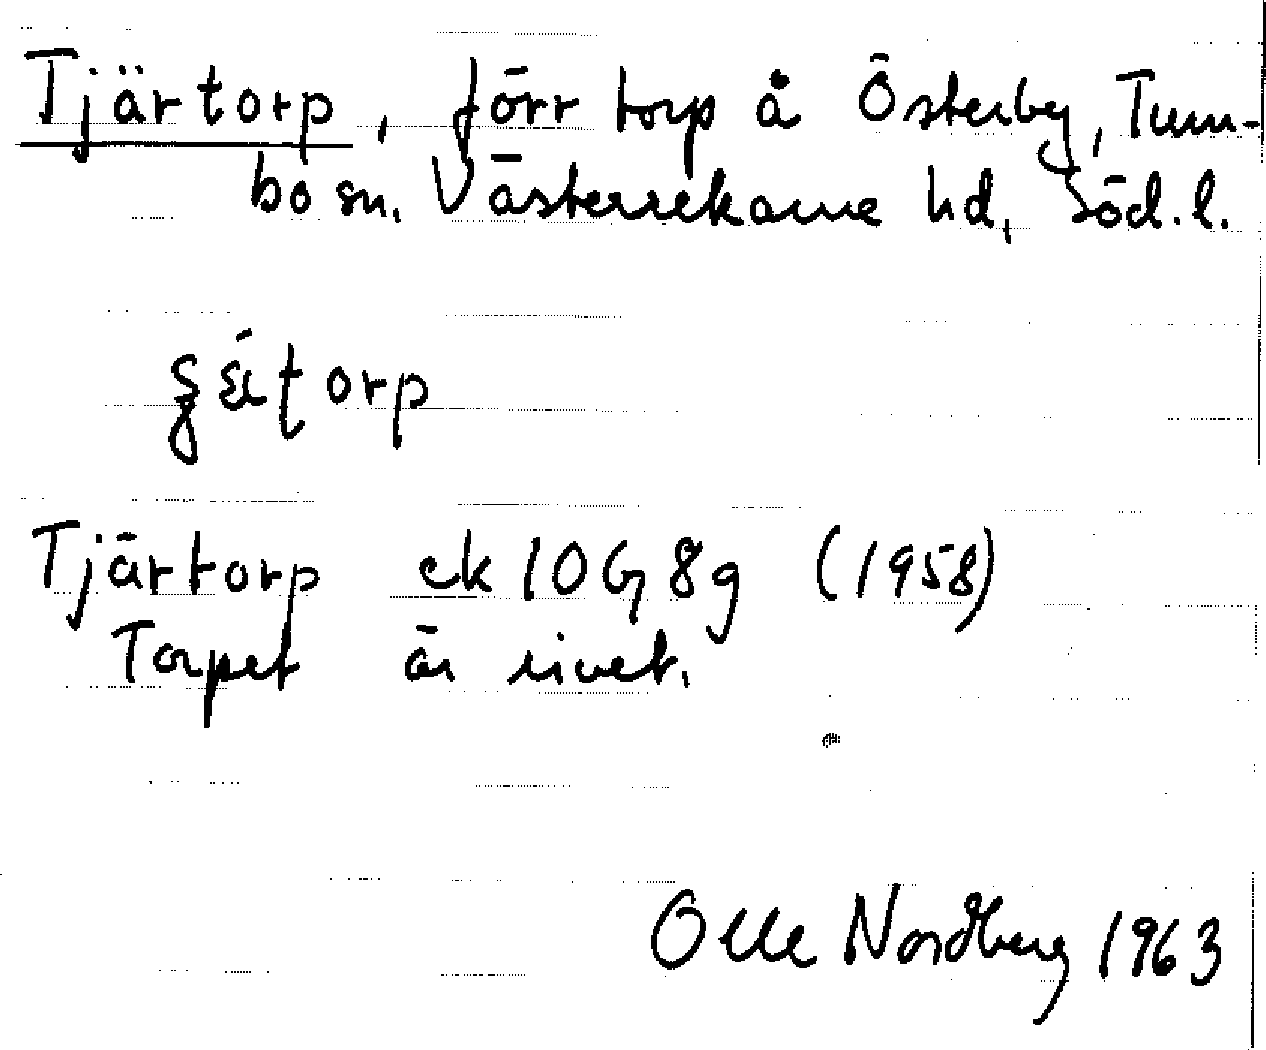 Tjärtorp, förr torp å Österby, Tum-
bo sn. Västerrekarne hd, Söd. l.
Tjärtorp ek 10G 8g (1958)
Torpet är rivet.
Olle Nordberg 1963